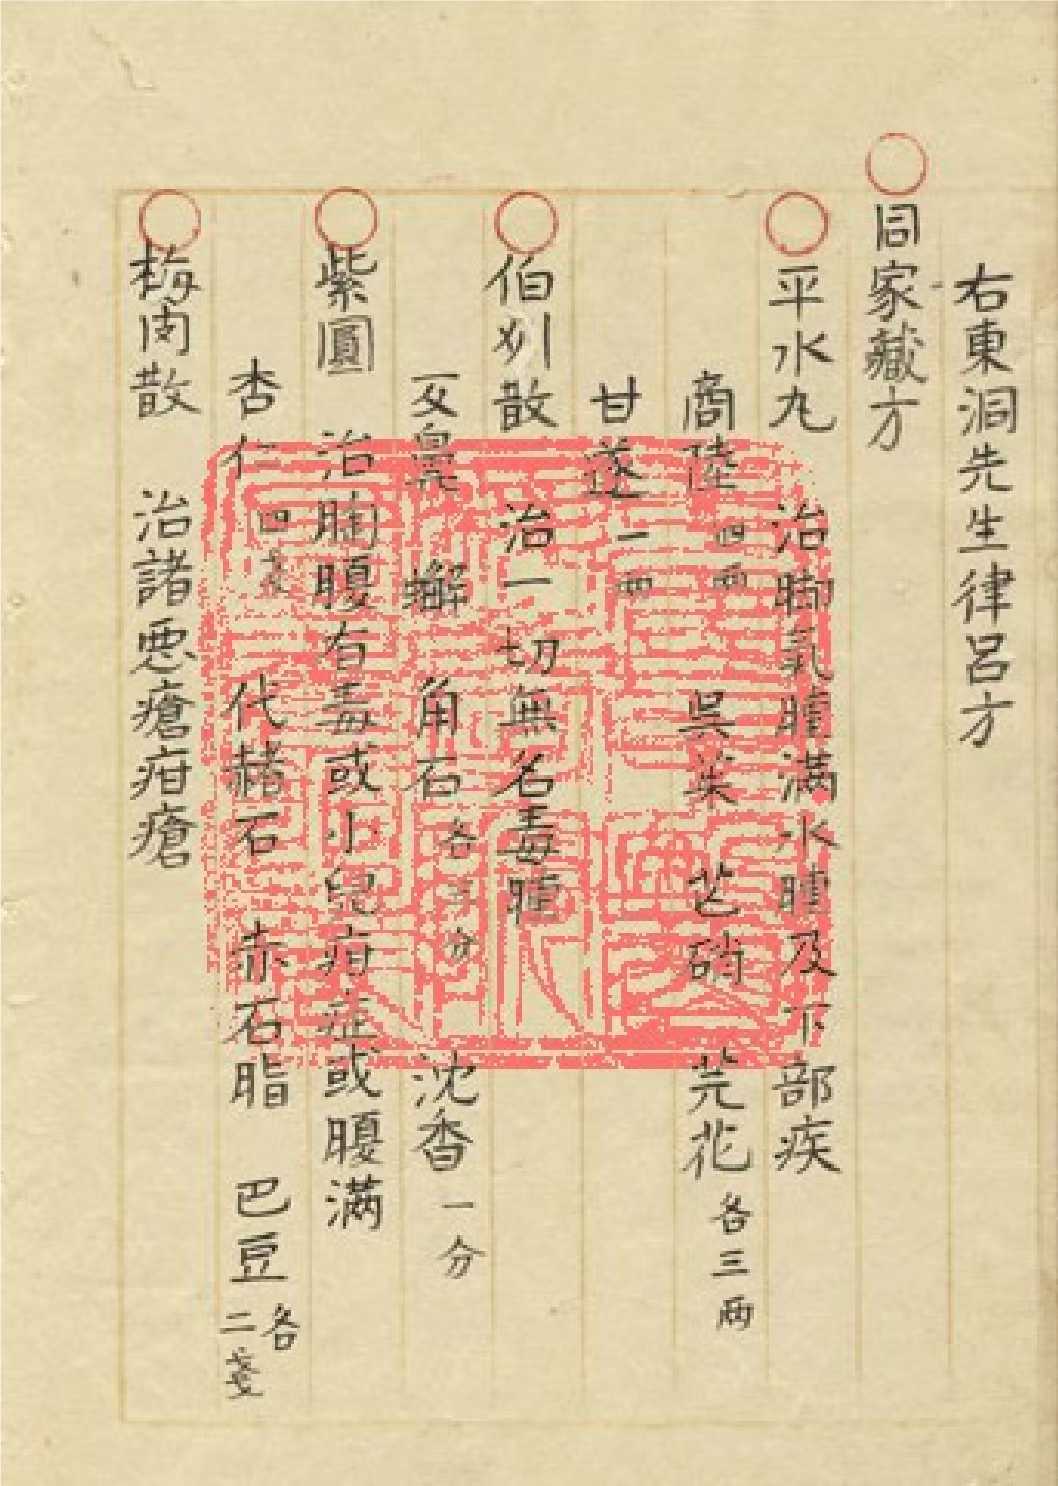 右東洞先生律呂方
同家蔵方
平水丸 治脚気腫満水腫及下部疾
商陸 四両 呉茱 芒硝 芫花 各三両
甘遂 一両
伯州散 治一切無名毒腫
反鼻 蟹 角石 各三分 沈香 一分
紫圓 治胸腹有毒或小兒疳症或腹満
杏仁 四銭 代赭石 赤石脂 巴豆 各二銭
梅肉散 治諸悪瘡疳瘡